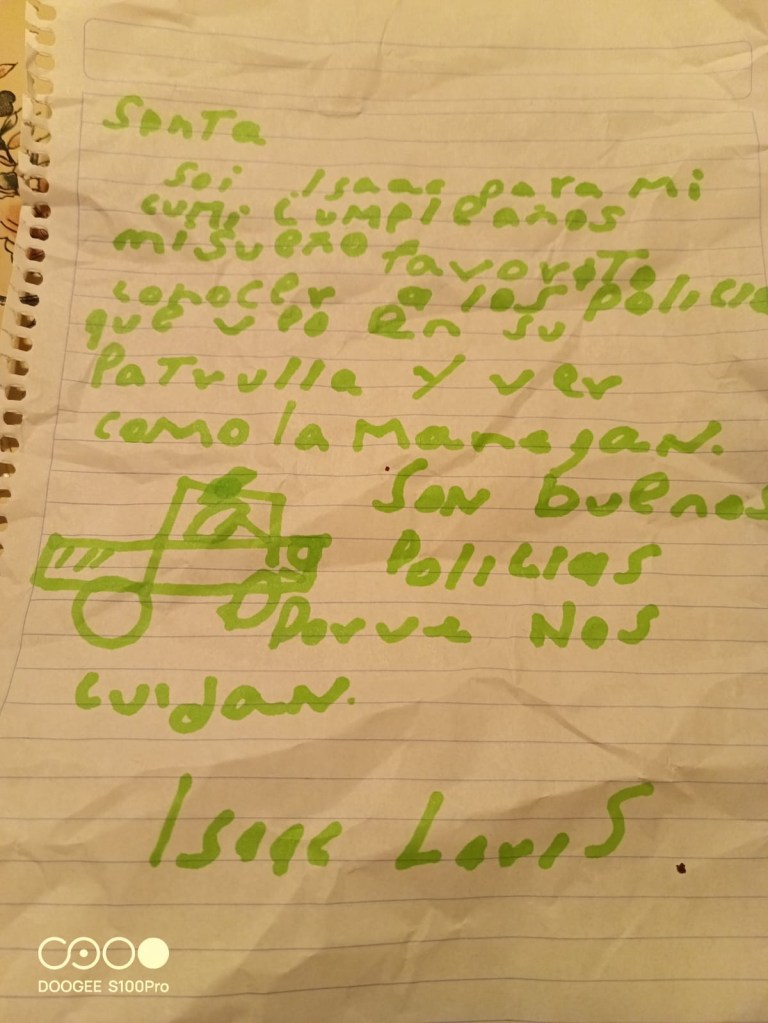 Santa
Soi Isaac para mi
cumi cumpleaños
mi sueño favorito
conocer a los policia
que veo en su
Patrulla y ver
como la manejan.
Son buenos
Policias
Porve Nos
cuidan.
Isaac Louis
DOOGEE S100Pro